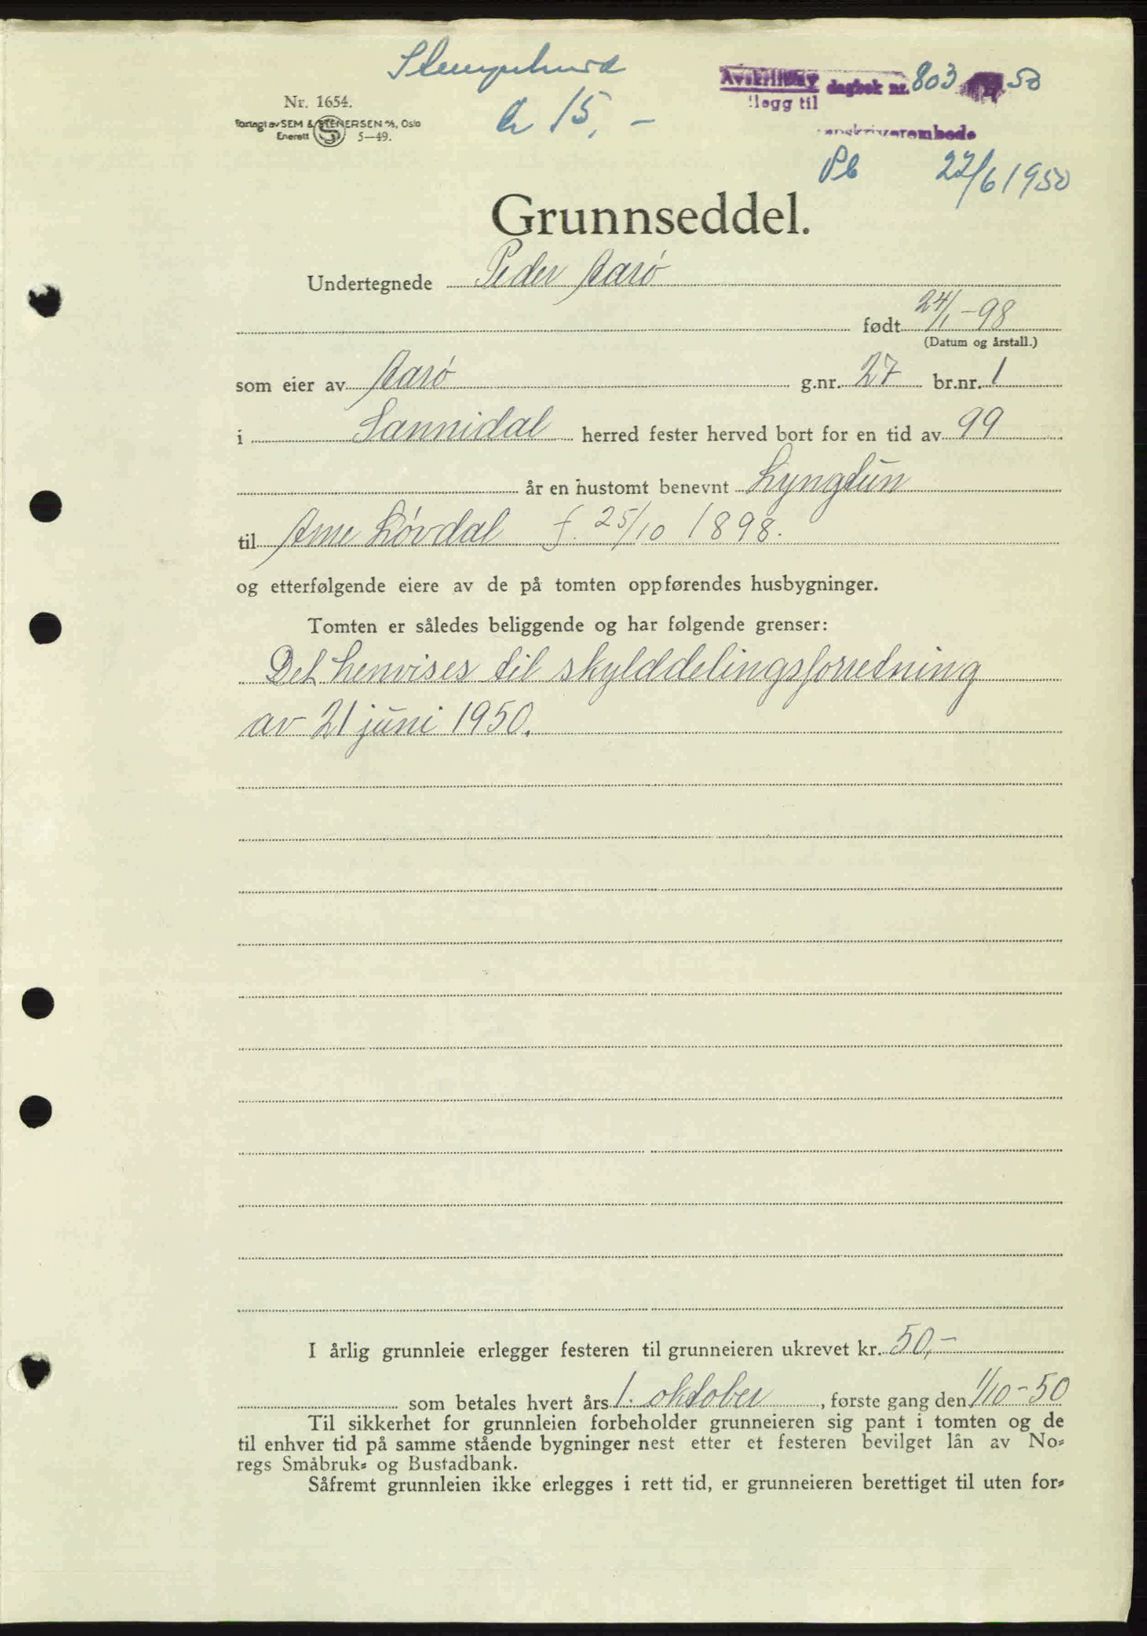 Stempelmerke
kr 15,-
Nr. 1654.
Forlagt av SEM & STENERSEN A/S, Oslo
Enerett 5—49.
Avskrift
ilegg til dagbok nr. 803 50
Pb 27/6 1950
Grunnseddel.
Undertegnede Peder Aarø
født 24/1 -98
(Datum og årstall.)
som eier av Aarø g.nr. 27 br.nr. 1
i Sannidal herred fester herved bort for en tid av 99
år en hustomt benevnt Lyngtun
til Arne Løvdal f. 25/10 1898.
og etterfølgende eiere av de på tomten oppførendes husbygninger.
Tomten er således beliggende og har følgende grenser:
Det henvises til skylddelingsforretning
av 21 juni 1950.
I årlig grunnleie erlegger festeren til grunneieren ukrevet kr. 50,-
som betales hvert års 1. oktober, første gang den 1/10-50
Til sikkerhet for grunnleien forbeholder grunneieren sig pant i tomten og de
til enhver tid på samme stående bygninger nest etter et festeren bevilget lån av No-
regs Småbruk- og Bustadbank.
Såfremt grunnleien ikke erlegges i rett tid, er grunneieren berettiget til uten for-